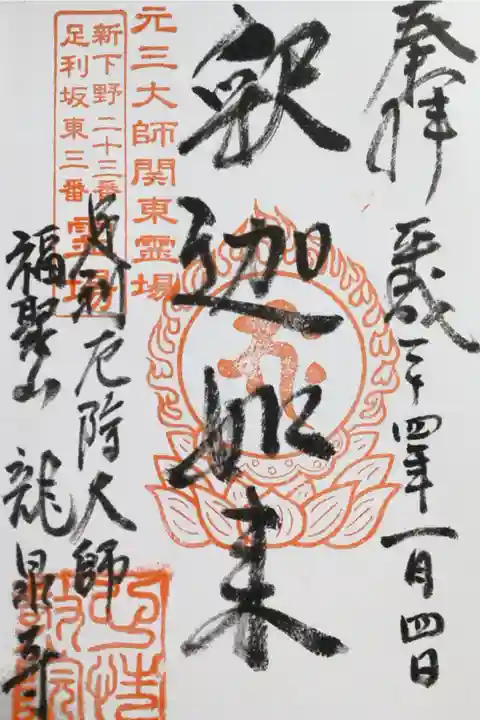 奉拝 平成二十四年一月四日
釈迦如来
元三大師関東霊場
新下野二十三番
足利坂東三番
霊場
足利厄除大師
福聚山 龍泉寺